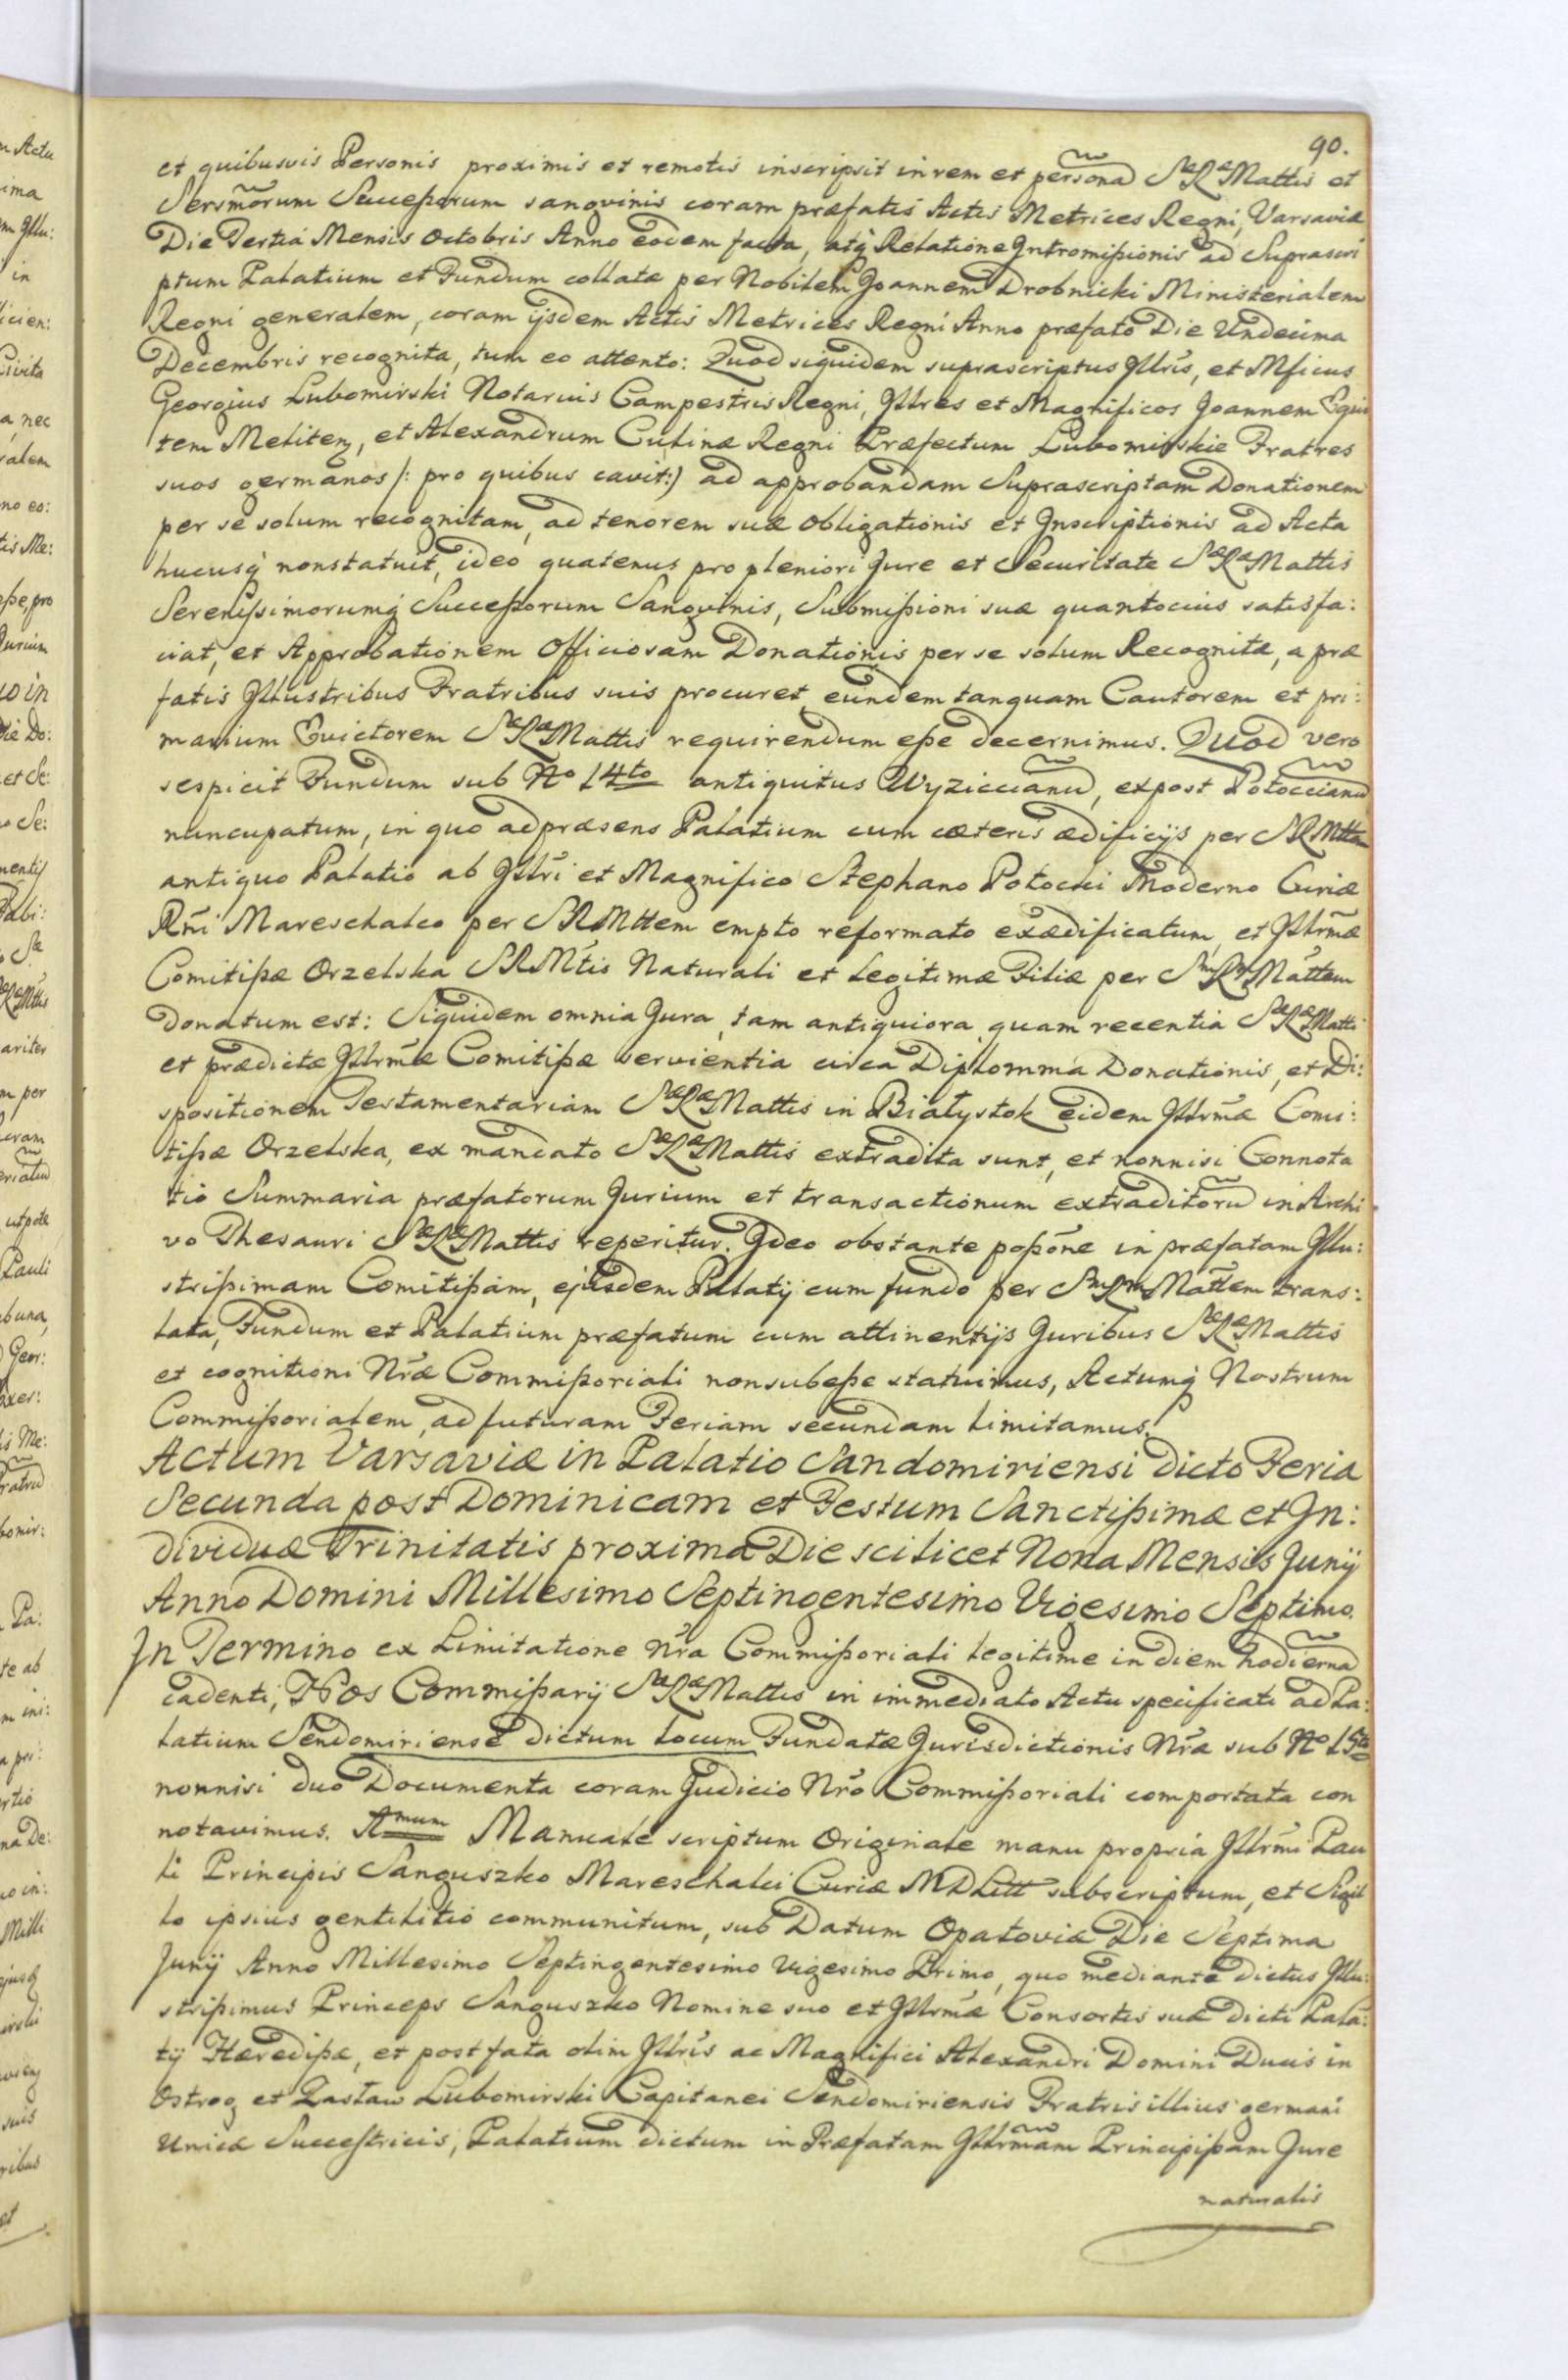 90.
et quibusvis Personis proximis et remotis inscripsit in rem et persona͂ SæRæMattis et
Sersm͂orum Successorum sangvinis coram præfatis Actis Metrices Regni, Varsaviæ
Die Tertia Mensis Octobris Anno eodem facta, atq́ Relatione Intromissionis ad Suprascri
ptum Palatium et Fundum collatæ per Nobilem Joannem Drobnicki Ministerialem
Regni generalem, coram ijsdem Actis Metrices Regni Anno præfato Die Undecima
Decembris recognita, tum eo attento: Quod siquidem suprascriptus Illris, et Mficus
Georgius Lubomirski Notarius Campestris Regni, Illres et Magnificos Joannem Equi
tem Meliten, et Alexandrum Culinæ Regni Præfectum Lubomirskie Fratres
suos germanos /: pro quibus cavit:) ad approbandam Suprascriptam Donationem
per se solum recognitam, ad tenorem suæ Obligationis et Inscriptionis ad Acta
hucusq́ nonstatuit, ideo quatenus pro pleniori Jure et Securitate SæRæMattis
Serenissimorumq́ Successorum Sangvinis, Submissioni suæ quantocius satisfa:
ciat, et Approbationem Officiosam Donationis per se solum Recognitæ, a præ
fatis Illustribus Fratribus suis procuret, eundem tanquam Cautorem et pri:
marium Evictorem SæRæMattis requirendum esse decernimus. Quod vero
respicit Fundum sub No 14to antiquitus Wyziccianu͂, expost Potoccianu͂
nuncupatum, in quo ad præsens Palatium cum cæteris ædificijs per SRMttem
antiquo Palatio ab Illri et Magnifico Stephano Potocki Moderno Curiæ
Rn͂i Mareschalco per SRMttem empto reformato exædificatum, et Illrm͂æ
Comitissæ Orzelska SRMtis Naturali et legitimæ Filiæ per SmRmMattem
donatum est: Siquidem omnia Jura, tam antiquiora quam recentia SæRæMattis
et prædictæ Illrm͂æ Comitissæ servientia circa Diplomma Donationis, et Di:
spositionem Testamentariam SæRæMattis in Białystok eidem Illrm͂æ Comi:
tissæ Orzelska, ex mandato SæRæMattis extradita sunt, et nonnisi Connota
tio Summaria præfatorum Jurium et transactionum extraditoru͂ in Archi
vo Thesauri SæRæMattis reperitur. Ideo obstante posso͂ne in præfatam Illu:
strissimam Comitissam, ejusdem Palatij cum fundo per SmRmMattem trans:
lata, Fundum et Palatium præfatum cum attinentijs Juribus SæRæMattis
et cognitioni Nr͂æ Commissoriali nonsubesse statuimus, Actumq́ Nostrum
Commissorialem, ad futuram Feriam secundam limitamus.
Actum Varsaviæ in Palatio Sandomiriensi dicto Feria
Secunda post Dominicam et Festum Sanctissimæ et In:
dividuæ Trinitatis proxima Die scilicet Nona Mensis Junij
Anno Domini Millesimo Septingentesimo Vigesimo Septimo.
In Termino ex Limitatione nr͂a Commissoriali legitime in diem hodierna͂
cadenti, Nos Commissarij SæRæMattis in immediato Actu specificati ad Pa:
latium Sendomiriense dictum locum Fundatæ Jurisdictionis Nr͂æ sub No 15to
nonnisi duo Documenta coram Judicio Nr͂o Commissoriali comportata con
notavimus. Amum Manuale scriptum Originale manu propria Illrm͂i Pau
li Principis Sanguszko Mareschalci Curiæ MDLitt subscriptum, et Sigil
lo ipsius gentilitio communitum, sub Datum Opatoviæ Die Septima
Junij Anno Millesimo Septingentesimo Vigesimo Primo, quo mediante dictus Illu:
strissimus Princeps Sanguszko Nomine suo et Illrm͂æ Consortis suæ dicti Pala:
tij Hæredissæ, et post fata olim Illris ac Magnifici Alexandri Domini Ducis in
Ostrog et Zasław Lubomirski Capitanei Sendomiriensis Fratris illius germani
Unicæ Successtricis, Palatium dictum in Præfatam Illrm͂am Principissam Jure
naturalis